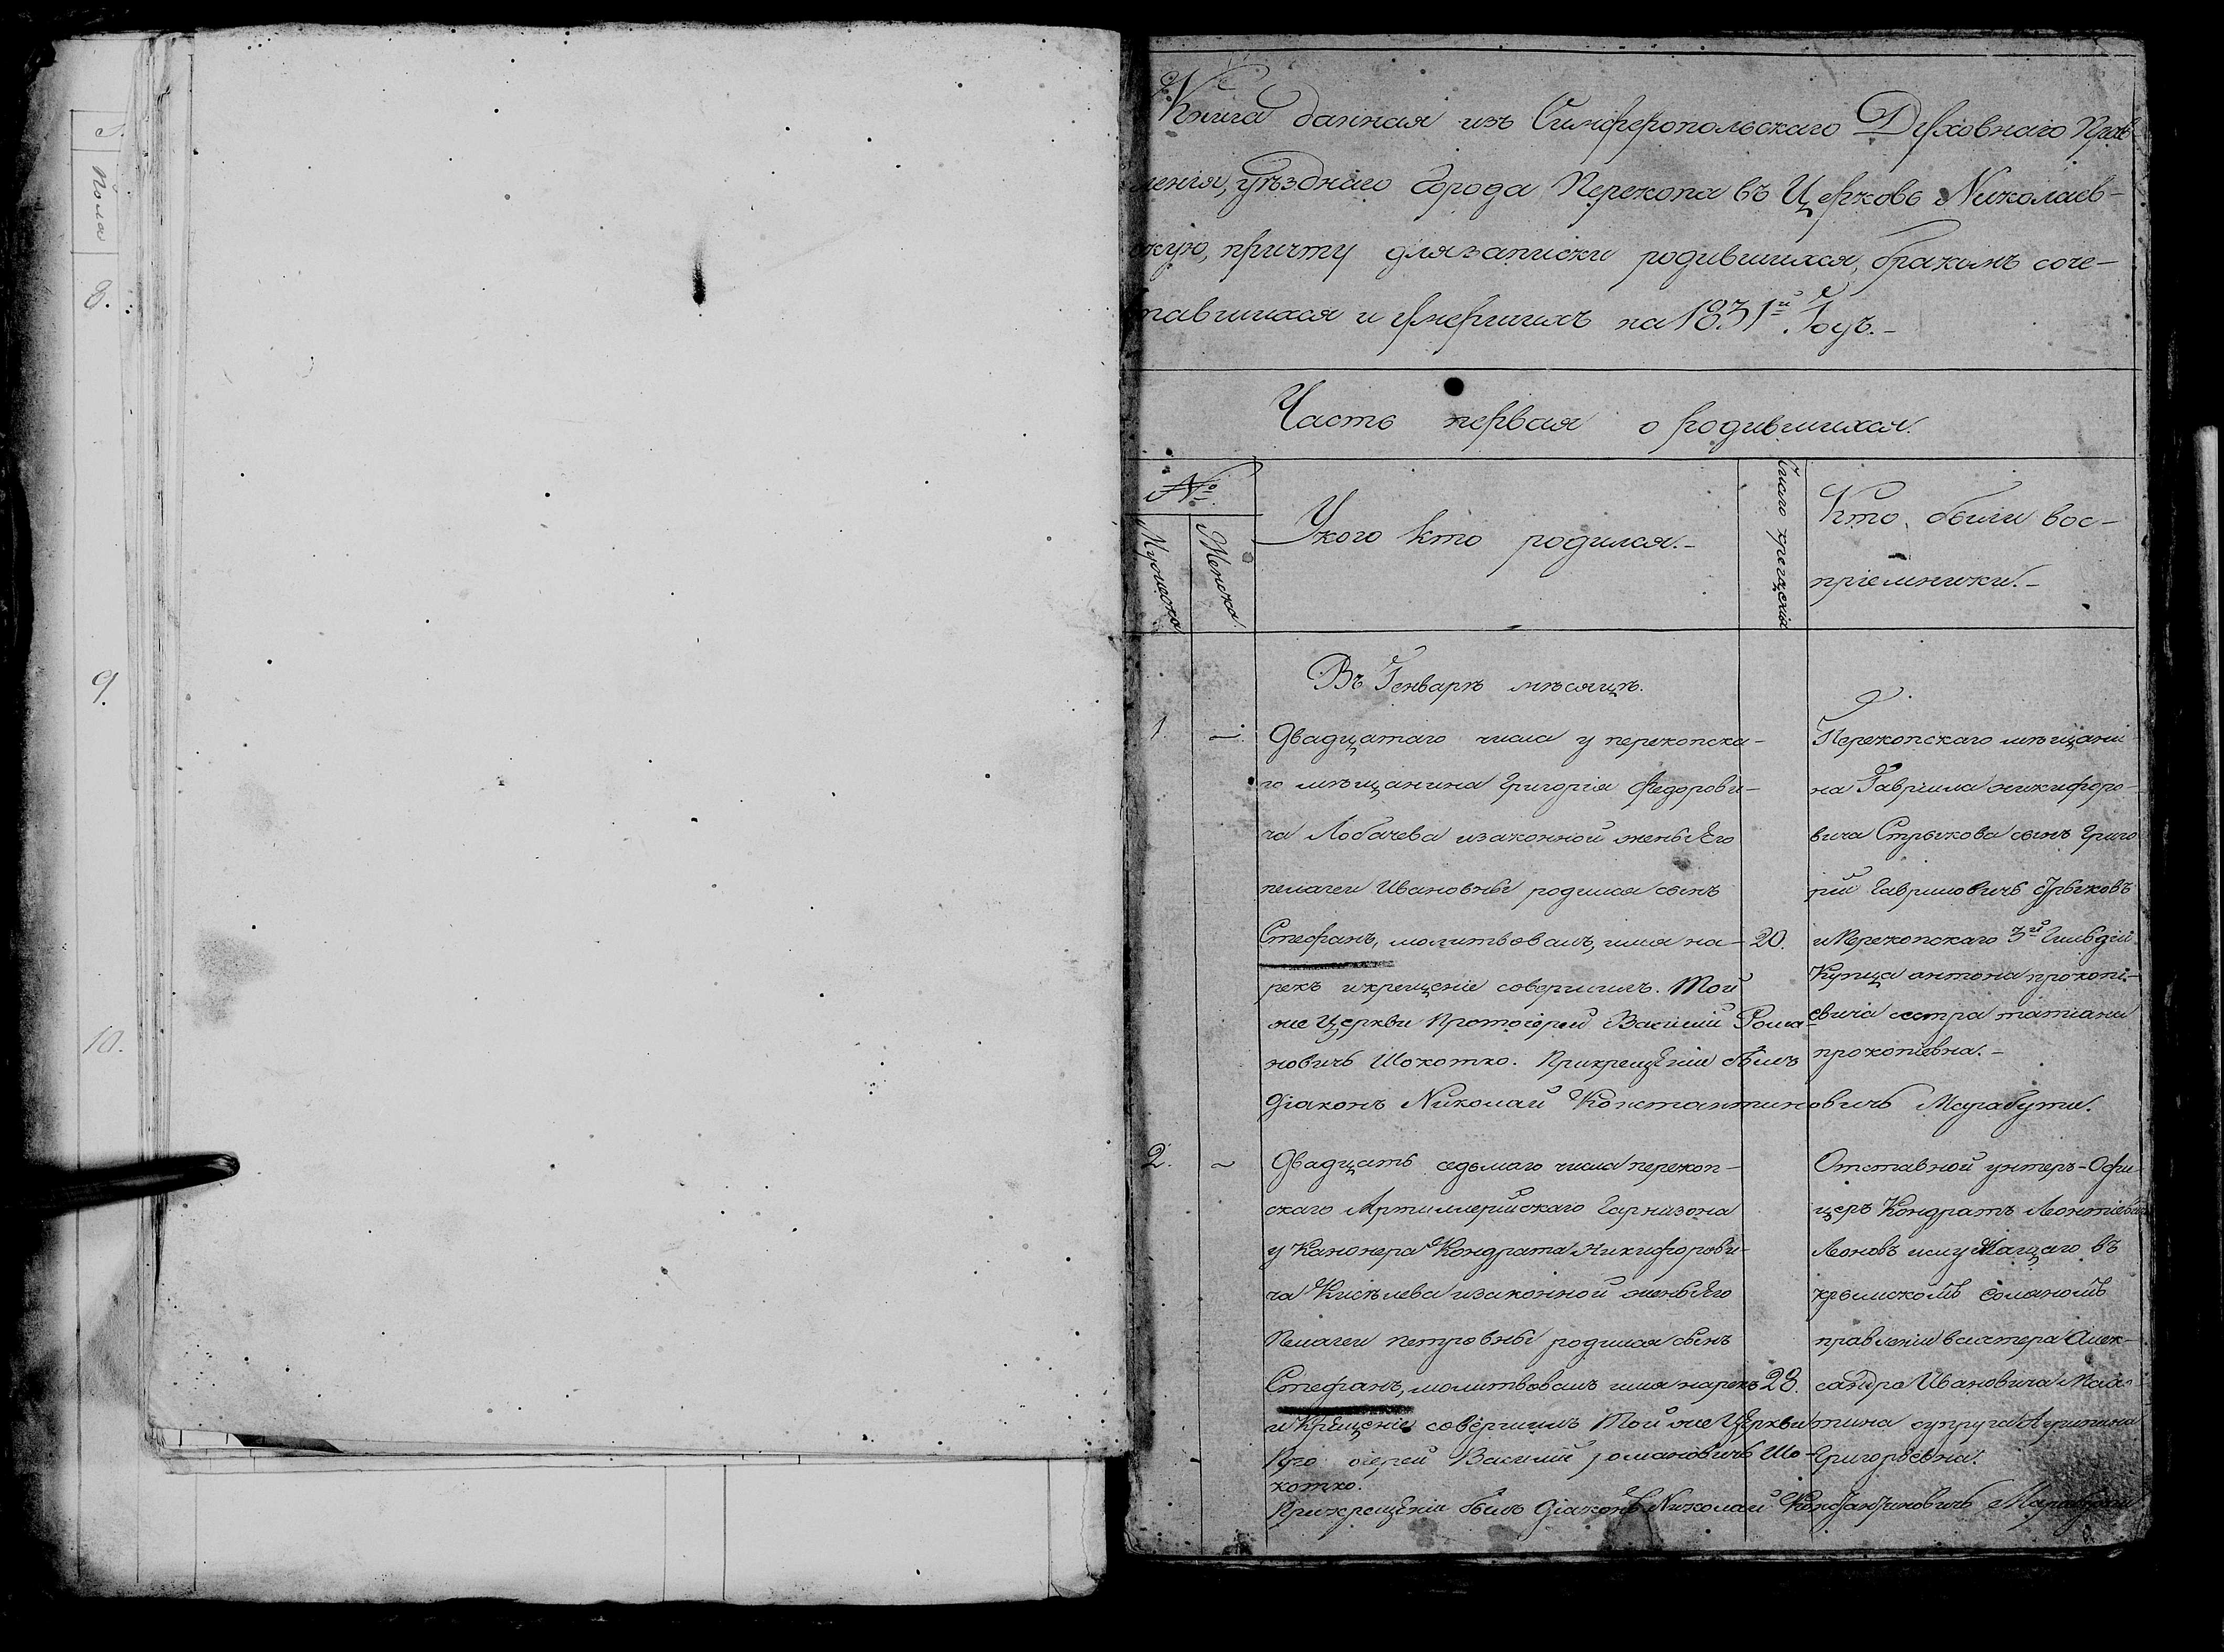 Пола
8.
9.
10.
Книга данная изъ Симферопольскаго Духовнаго Прав
ленія, уѣзднаго города Перекопа въ Церковь Николаев-
скую, причту для записки родившихся, бракомъ соче-
тавшихся и умершихъ на 1831й Годъ.-
Часть первая о родившихся.
№
Мужеска
Женска
Укого кто родился.-
Число крещенія
Кто были вос-
пріемники.-
Въ Генварѣ мѣсяцѣ.
1.
Двадцатаго числа у перекопска-
го мѣщанина Григорія Федорови-
ча Лобачева изаконной жены Его
пелагеи Ивановны родился сынъ
Стефанъ, молитвовалъ, имя на-
рекъ икрещеніе совершилъ. Той
же Церкви Протоіерей Василий Рома-
новичь Шокотко. ПрикрещЕніи былъ
Діаконъ Николай Константиновичь Марабути.
20.
Перекопскаго мѣщани
на Гавріила никифоро-
вича Стрыкова сынъ Григо
рій Гавриловичь Стрыковъ
иПерекопскаго 3й Гильдіи
Купца антона прокопі-
евича сестра татіана
прокопіевна.-
2.
Двадцать седьмаго числа перекоп-
скаго Артиллерийскаго Гарнизона
у Канонера Кондрата Никифорови-
ча Кисѣлева изаконной жены Его
Пелагеи петровны родился сынъ
Стефанъ, молитвовалъ имя нарекъ
и крещеніе совершилъ Той же Церкви
Про оіерей Василий романовичь Шо-
котко.
Прикрещеніи былъ Діаконъ Николай Константиновичь Марабути
28.
Отставной унтеръ-Офи-
церъ Кондратъ Леонтіевичь
Леоновъ ислужащаго въ
крымскомъ соляномъ
правленіи вахтера Алек-
сандра Ивановича
супруга Агрипина
Григорьевна.